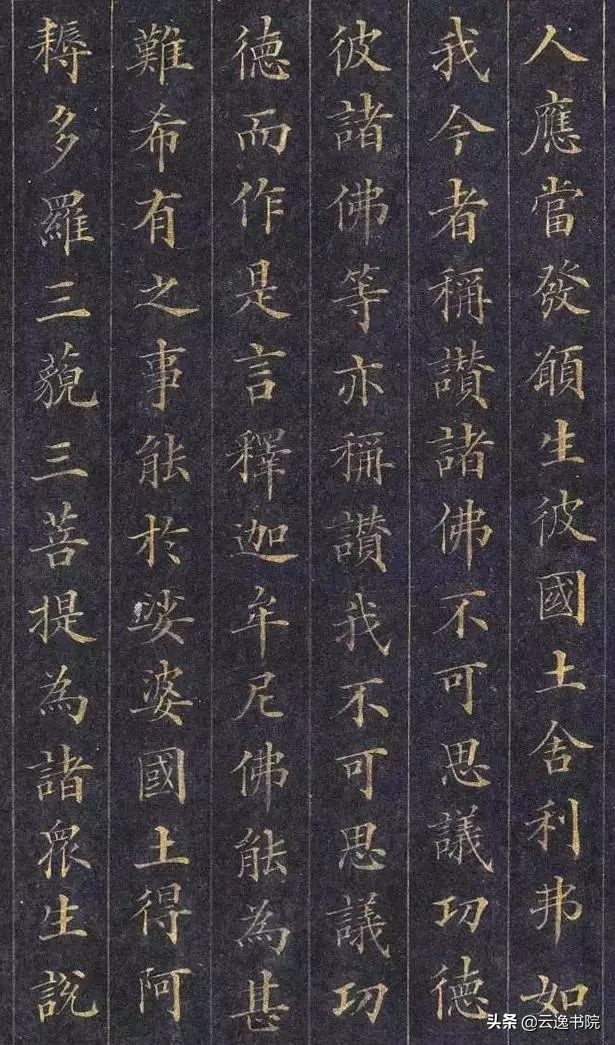 人應當發願生彼國土舍利弗如
我今者稱讃諸佛不可思議功德
彼諸佛等亦稱讃我不可思議功
德而作是言釋迦牟尼佛能為甚
難希有之事能於娑婆國土得阿
耨多羅三藐三菩提為諸眾生說
头条 @云逸书院